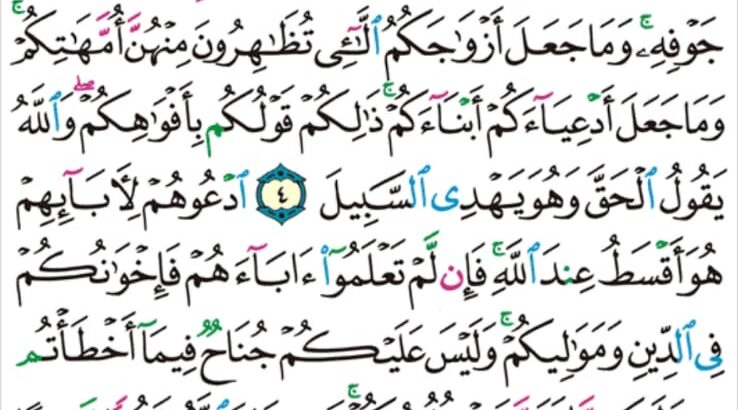 جَوْفِهِۦۚ وَمَا جَعَلَ أَزْوَٰجَكُمُ ٱلَّٰٓـِٔى تُظَٰهِرُونَ مِنْهُنَّ أُمَّهَٰتِكُمْۚ
وَمَا جَعَلَ أَدْعِيَآءَكُمْ أَبْنَآءَكُمْۚ ذَٰلِكُمْ قَوْلُكُم بِأَفْوَٰهِكُمْۖ وَٱللَّهُ
يَقُولُ ٱلْحَقَّ وَهُوَ يَهْدِى ٱلسَّبِيلَ ٤ ٱدْعُوهُمْ لِأَبَآئِهِمْ
هُوَ أَقْسَطُ عِندَ ٱللَّهِۚ فَإِن لَّمْ تَعْلَمُوٓا۟ ءَابَآءَهُمْ فَإِخْوَٰنُكُمْ
فِى ٱلدِّينِ وَمَوَٰلِيكُمْۚ وَلَيْسَ عَلَيْكُمْ جُنَاحٌ فِيمَآ أَخْطَأْتُم